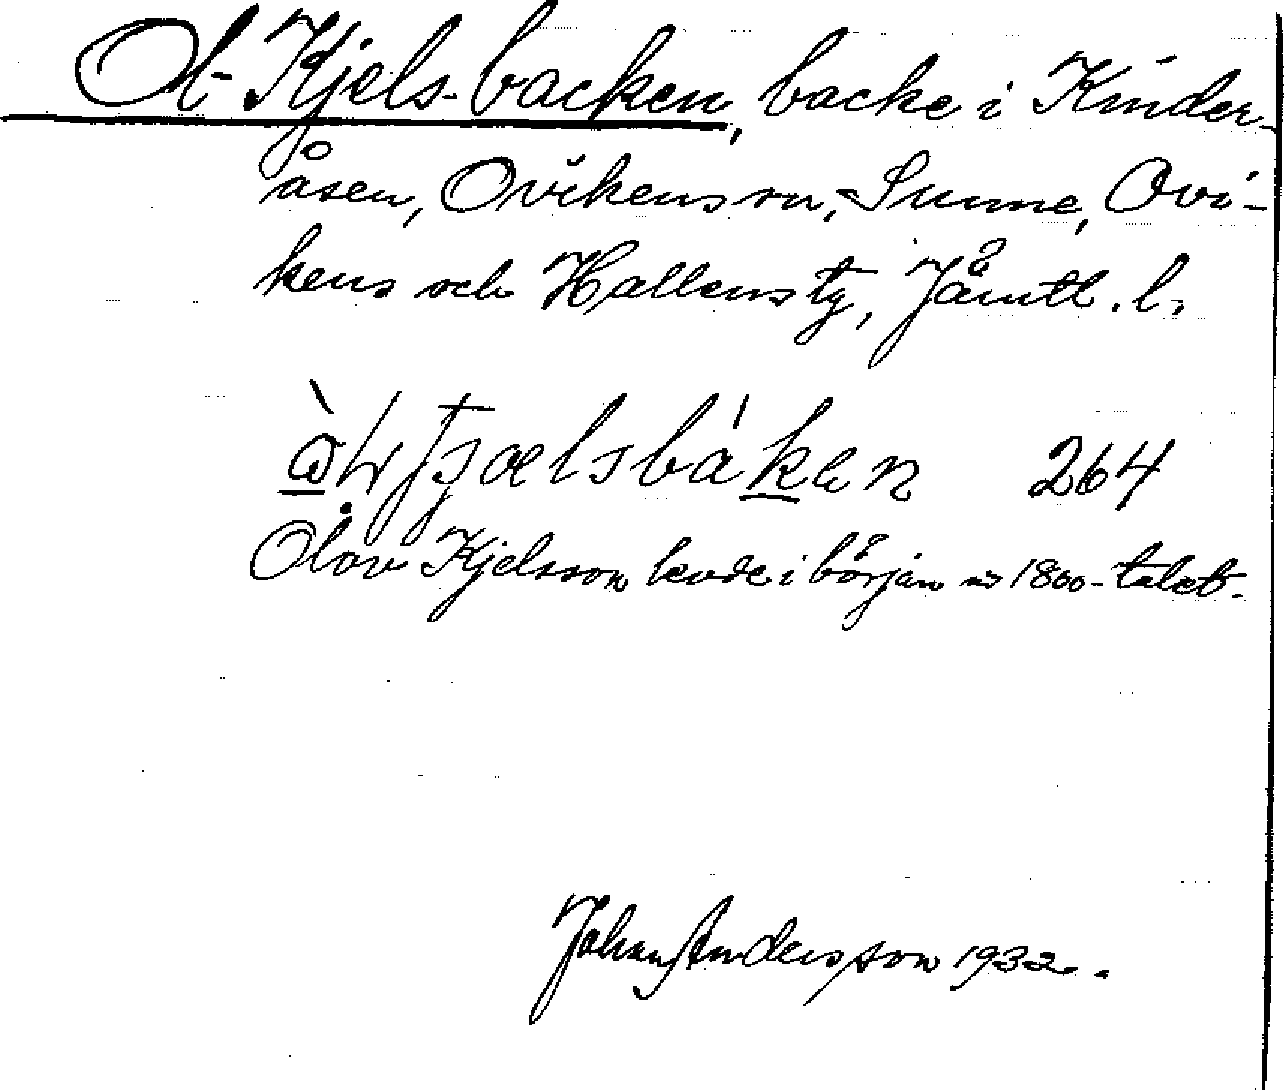 Ol-Kjels-backen, backe i Kinder-
åsen, Ovikens sn, Sunne, Ovi-
kens och Hallens tg, Jämtl. l.
264
Olov Kjelsson levde i början av 1800-talet.
Johan Andersson 1932.